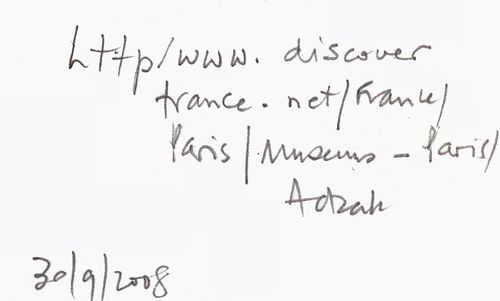 http/www. discover
france.net/France/
Paris/Museums-Paris/
Adzak
30/9/2008